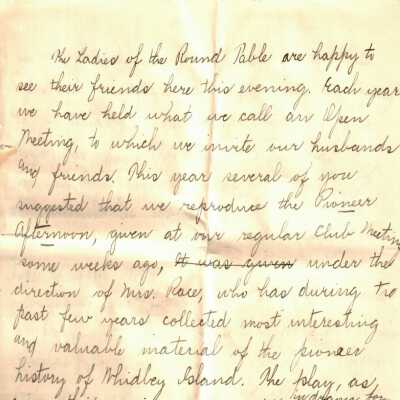 The Ladies of the Round Table are happy to
see their friends here this evening. Each year
we have held what we call an Open
Meeting, to which we invite our husbands
and friends. This year several of you
suggested that we reproduce the Pioneer
Afternoon, given at our regular Club Meeting
some weeks ago, It was given under the
direction of Mrs. Pace, who has during the
past few years collected most interesting
and valuable material of the pioneer
history of Whidbey Island. The play, as